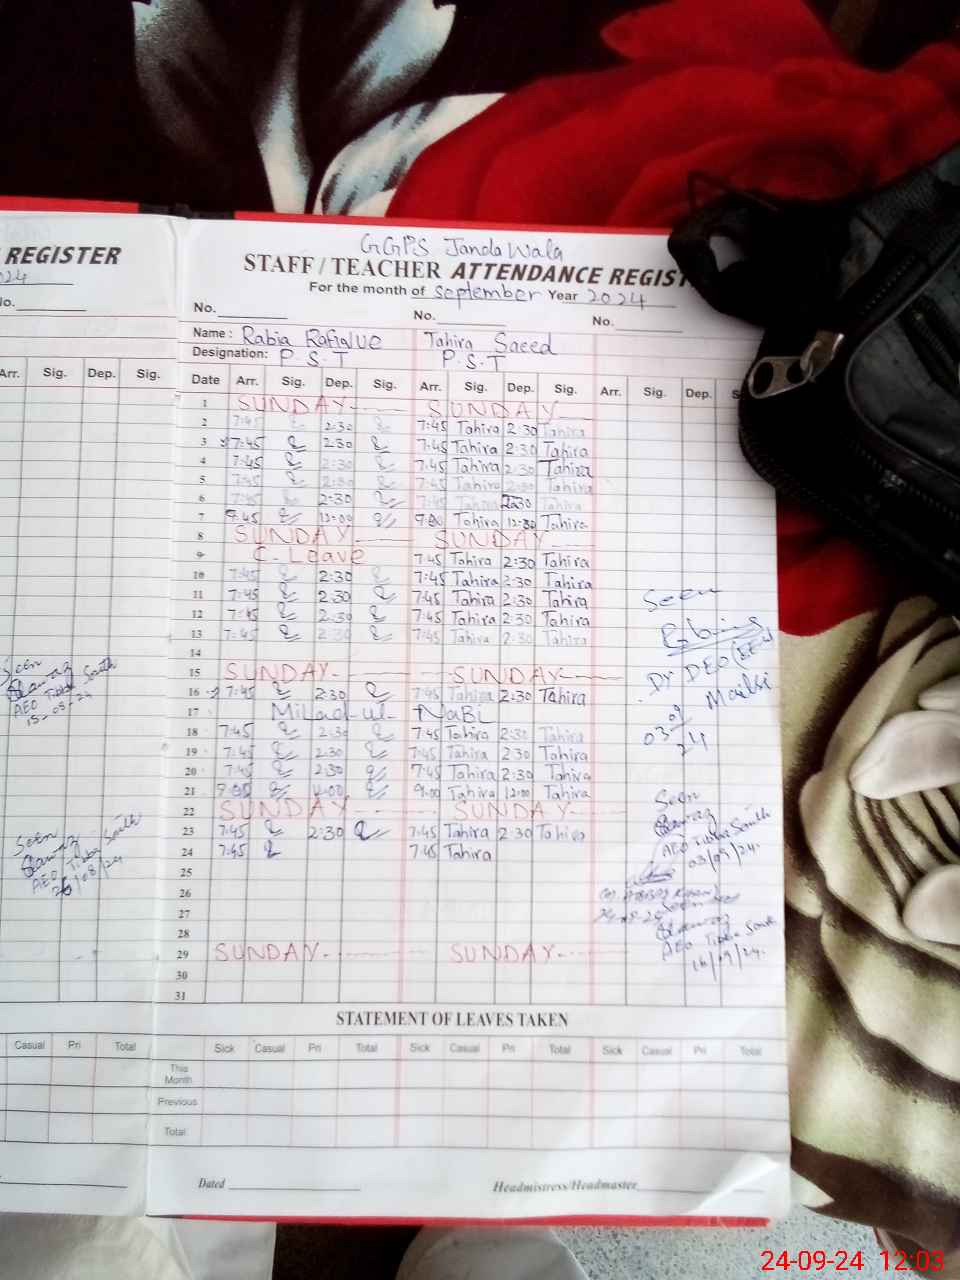 REGISTER
024
No.
Arr. Sig. Dep. Sig.
Seen
AEO Tibba South
15-08-24
Seen
AEO Tibba South
26/08/24
Casual Pri Total
GGPS Janda Wala
STAFF / TEACHER ATTENDANCE REGIST
For the month of September Year 2024
No. No. No.
Name: Rabia Rafique Tahira Saeed
Designation: P.S.T P.S.T
Date Arr. Sig. Dep. Sig. Arr. Sig. Dep. Sig. Arr. Sig. Dep. S
1 SUNDAY SUNDAY
2 7:45 2:30 7:45 Tahira 2:30 Tahira
3 7:45 2:30 7:45 Tahira 2:30 Tahira
4 7:45 2:30 7:45 Tahira 2:30 Tahira
5 7:45 2:30 7:45 Tahira 2:30 Tahira
6 7:45 2:30 7:45 Tahira 2:30 Tahira
7 12:00 9:00 Tahira Tahira
8 SUNDAY SUNDAY
9 C. Leave 7:45 Tahira 2:30 Tahira
10 7:45 2:30 7:45 Tahira 2:30 Tahira
11 7:45 2:30 7:45 Tahira 2:30 Tahira
12 7:45 2:30 7:45 Tahira 2:30 Tahira
13 7:45 2:30 7:45 Tahira 2:30 Tahira
14
15 SUNDAY SUNDAY
16 7:45 2:30 7:45 Tahira 2:30 Tahira
17 Milad-ul-NaBi
18 7:45 2:30 7:45 Tahira 2:30 Tahira
19 7:45 2:30 7:45 Tahira 2:30 Tahira
20 7:45 2:30 7:45 Tahira 2:30 Tahira
21 9:00 Tahira 12:00 Tahira
22 SUNDAY SUNDAY
23 7:45 2:30 7:45 Tahira 2:30 Tahira
24 7:45 7:45 Tahira
25
26
27
28
29 SUNDAY SUNDAY
30
31
Seen
Dy DEO (EE-W)
Mailsi
03/09/24
Seen
AEO Tibba South
03/09/24.
24-09-24
Seen
AEO Tibba South
16/9/24.
STATEMENT OF LEAVES TAKEN
Sick Casual Pri Total Sick Casual Pri Total Sick Casual Pri Total
This Month
Previous
Total
Dated Headmistress/Headmaster
24-09-24 12:03